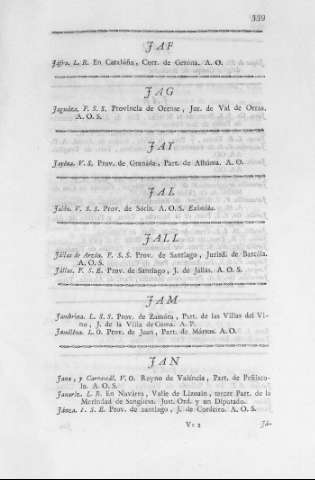 339
JAF
Jáfra. L. R. En Cataluña, Corr. de Gerona. A. O.
JAG
Jagoáza. F. S. S. Provincia de Orense, Jur. de Val de Orras.
A. O. S.
JAY
Jayéna. V. S. Prov. de Granáda, Part. de Alháma. A. O.
JAL
Jalón. V. S. S. Prov. de Soria. A. O. S. Exímida.
JALL
Jállas de Arzón. F. S. S. Prov. de Santiago, Jurisd. de
A. O. S.
Jállas. F. S. E. Prov. de Santiago, J. de Jállas. A. O. S.
JAM
Jambrina. L. S. S. Prov. de Zamóra, Part. de las Villas del Vi-
no, J. de la Villa de A. P.
Jamiléna. L. O. Prov. de Jaen, Part. de Mártos. A. O.
JAN
Jana, y Carrascál. V. O. Reyno de Valéncia, Part. de Peñísco-
la. A. O. S.
Janariz. L. R. En Navarra, Valle de Lizoain, tercer Part. de la
Merindad de Sangüesa. Just. Ord. y un Diputado.
Jánza. F. S. E. Prov. de Santiago, J. de Cordeiro. A. O. S.
Vv 2 Já-